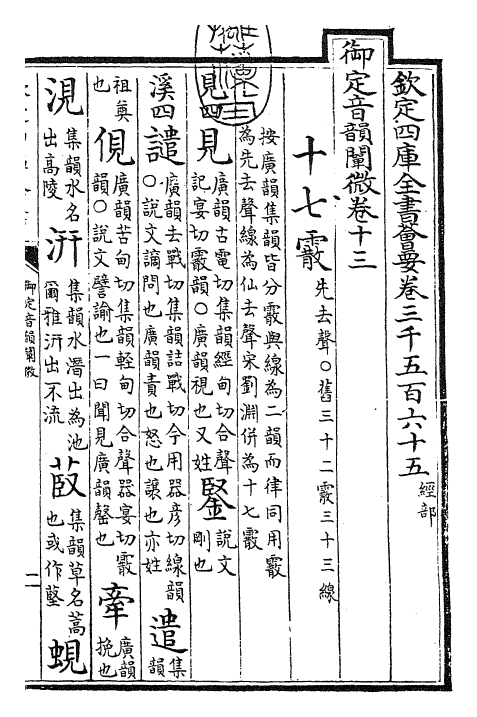 欽定四庫全書薈要卷三千五百六十五 經部
御定音韻闡微卷十三
十七霰 先去聲○舊三十二霰三十三線
按廣韻集韻皆分霰與線為二韻而律同用霰
為先去聲線為仙去聲宋劉淵併為十七霰
見四見 廣韻古電切集韻經甸切合聲
記宴切霰韻○廣韻視也又姓 鋻 說文
剛也
溪四譴 廣韻去戰切集韻詰戰切今用器彥切線韻
○說文謫問也廣韻責也怒也讓也亦姓 遣 集韻
祖奠
也 俔 廣韻苦甸切集韻輕甸切合聲器宴切霰
韻○說文譬諭也一曰聞見廣韻罄也 牽 廣韻
挽也
涀 集韻水名
出高陵 汧 集韻水潛出為池
爾雅汧出不流 菣 集韻草名蒿
也或作䔖 蜆
御定音韻闡微
二